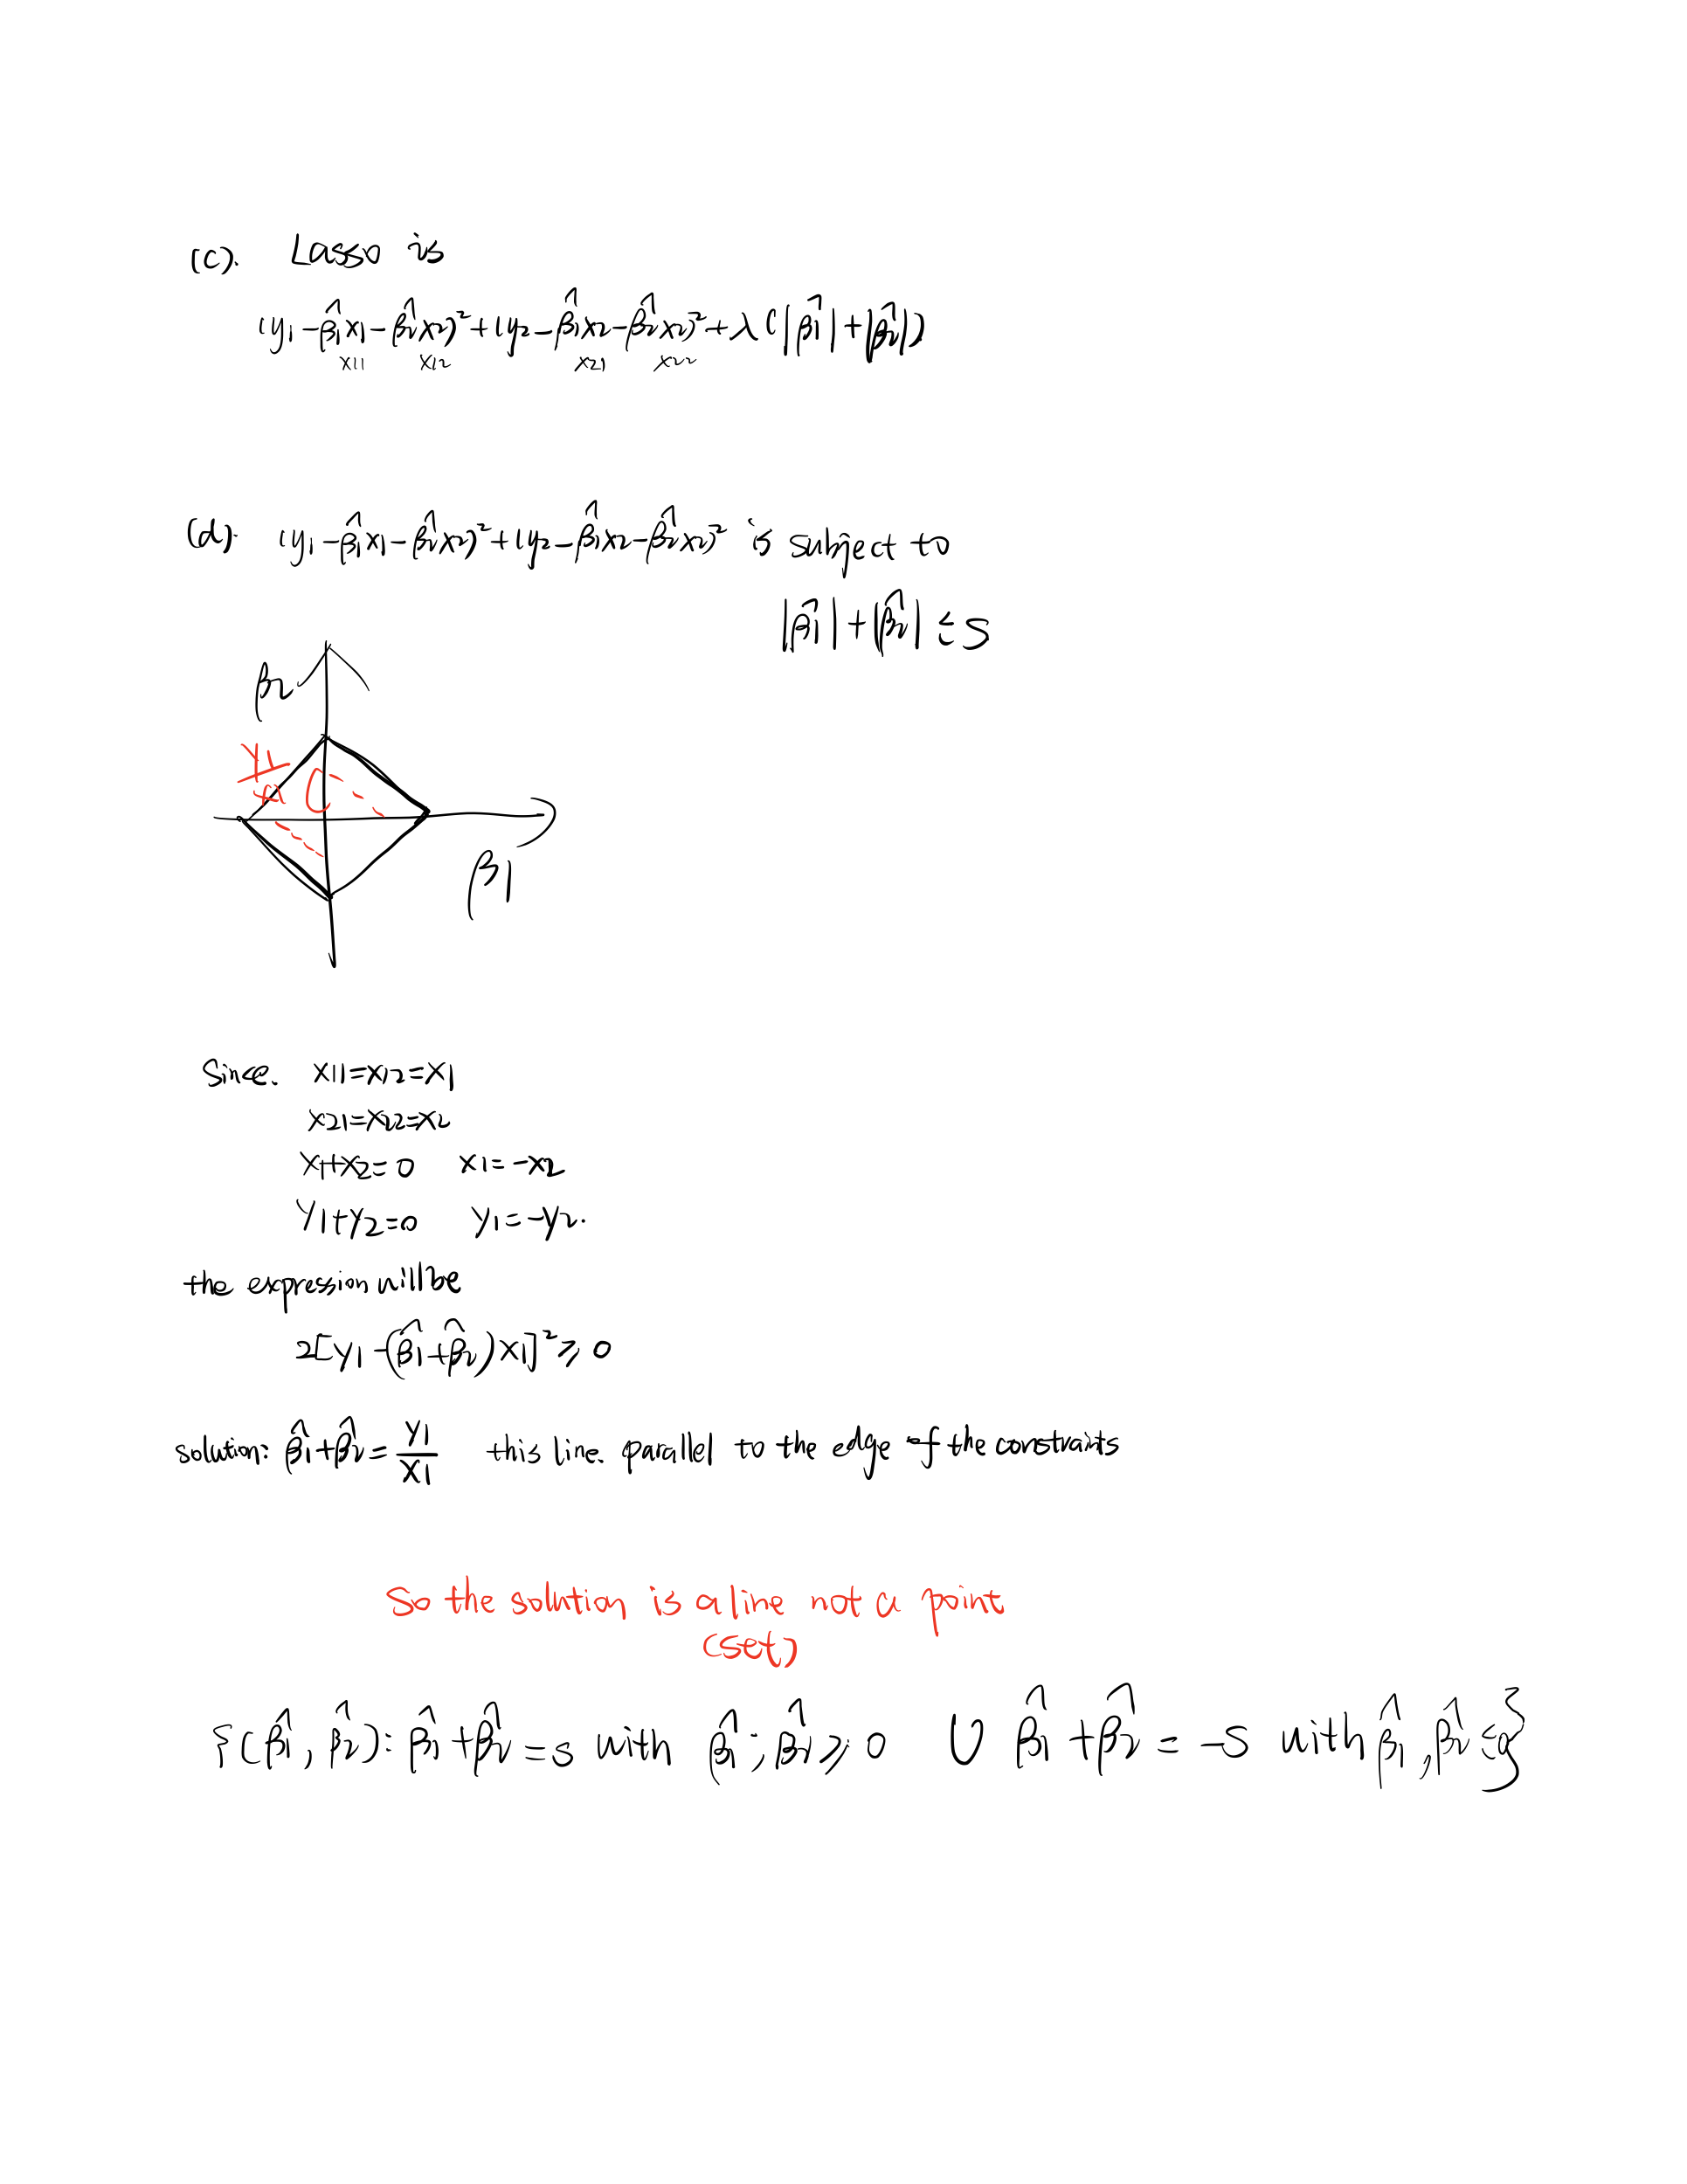 (c). Lasso is
(y1 - β̂1x1 - β̂2x2)² + (y2 - β̂1x2 - β̂2x2)² + λ(|β̂1| + |β̂2|)
x11 x12 x21 x22
(d). (y1 - β̂1x1 - β̂2x2)² + (y2 - β̂1x2 - β̂2x2)² is subject to
|β̂1| + |β̂2| ≤ s
β2
β1
Since. x11=x12=x1
x21=x22=x2
x1+x2=0 x1=-x2
y1+y2=0 y1=-y2.
the expression will be
2[y1-(β̂1+β̂2)x1]² ≥ 0
solution: β̂1+β̂2 = y1/x1 this line parallel to the edge of the constraints
So the solution is a line not a point
(set)
{(β̂1, β̂2): β̂1+β̂2 = s with β̂1; β̂2 ≥ 0 ∪ β̂1+β̂2 = -s with β̂1, β̂2 ≤ 0}